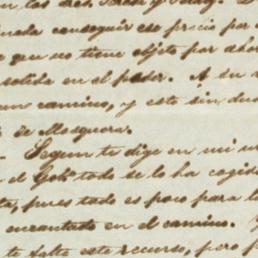 en las dos
nada conseguir ese precio por
que no tiene objeto por ahor
salida en el poder. A su
un camino, y esto sin dud
de Mosquera.
Segun te dige en mi
el Gobo todo se lo ha cogido
ta, pues todo es poco para l
encantado en el camino. Y
te falte este recurso, pero